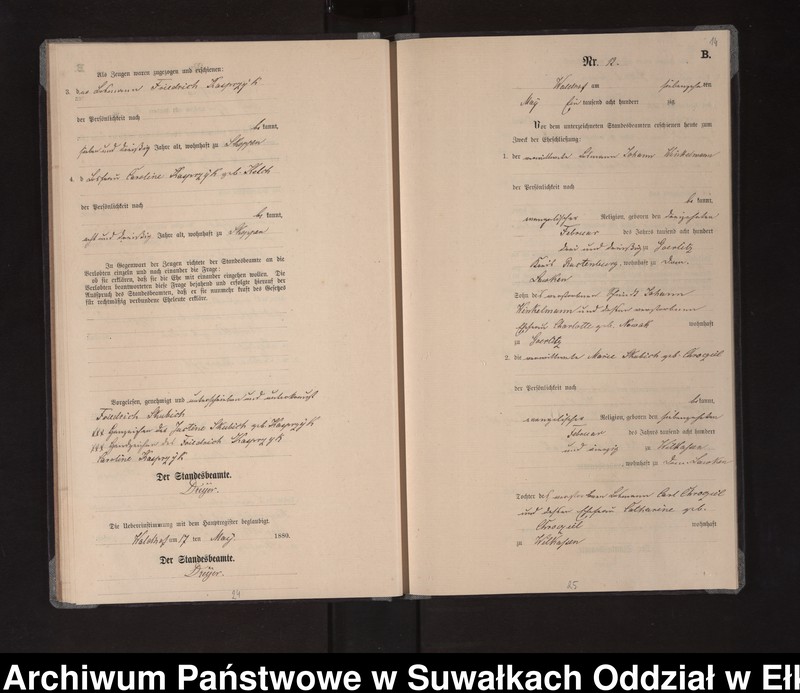 Als Zeugen waren zugezogen und erschienen:
3. der Losmann Friedrich Kasprzyk
der Persönlichkeit nach
be kannt,
sieben und dreissig Jahre alt, wohnhaft zu Skoppen
4. Caroline Kasprzyk geb.
der Persönlichkeit nach
be kannt,
acht und dreissig Jahre alt, wohnhaft zu Skoppen
In Gegenwart der Zeugen richtete der Standesbeamte an die
Verlobten einzeln und nach einander die Frage:
ob sie erklären, daß sie die Ehe mit einander eingehen wollen. Die
Verlobten beantworteten diese Frage bejahend und erfolgte hierauf der
Ausspruch des Standesbeamten, daß er sie nunmehr kraft des Gesetzes
für rechtmäßig verbundene Eheleute erkläre.
Vorgelesen, genehmigt und unterschrieben und unterkreuzt
Friedrich Skubich
××× Handzeichen der Justine Skubich geb Kasprzyk
××× Handzeichen des Friedrich Kasprzyk
Caroline Kasprzyk
Der Standesbeamte.
Dreyer.
Die Uebereinstimmung mit dem Hauptregister beglaubigt
Waldhof am 17 ten May 1880.
Der Standesbeamte.
Dreyer.
24
14
B.
Nr. 12.
Waldhof am siebenzehn ten
May Ein tausend acht hundert zig
Vor dem unterzeichneten Standesbeamten erschienen heute zum
Zweck der Eheschließung:
1. der verwittwete Losmann Johann Winkelmann
der Persönlichkeit nach
be kannt,
evangelischer Religion, geboren den dreizehnten
Februar des Jahres tausend acht hundert
drei und dreissig zu Goerlitz
Kreis Rastenburg, wohnhaft zu Dom.
Sohn des verstorbenen Johann
Winkelmann und dessen verstorbenen
Ehefrau Charlotte geb. Nowak wohnhaft
zu Goerlitz
2. die verwittwete Marie Skubich geb. Chrosziel
der Persönlichkeit nach
be kannt,
evangelischer Religion, geboren den siebenzehnten
Februar des Jahres tausend acht hundert
und vierzig zu Wilkassen
wohnhaft zu Dom.
Tochter des verstorbenen Losmann Carl Chrosziel
und dessen Ehefrau Catharine geb.
Chrosziel wohnhaft
zu Wilkassen
25
Archiwum Państwowe w Suwałkach Oddział w Ełk